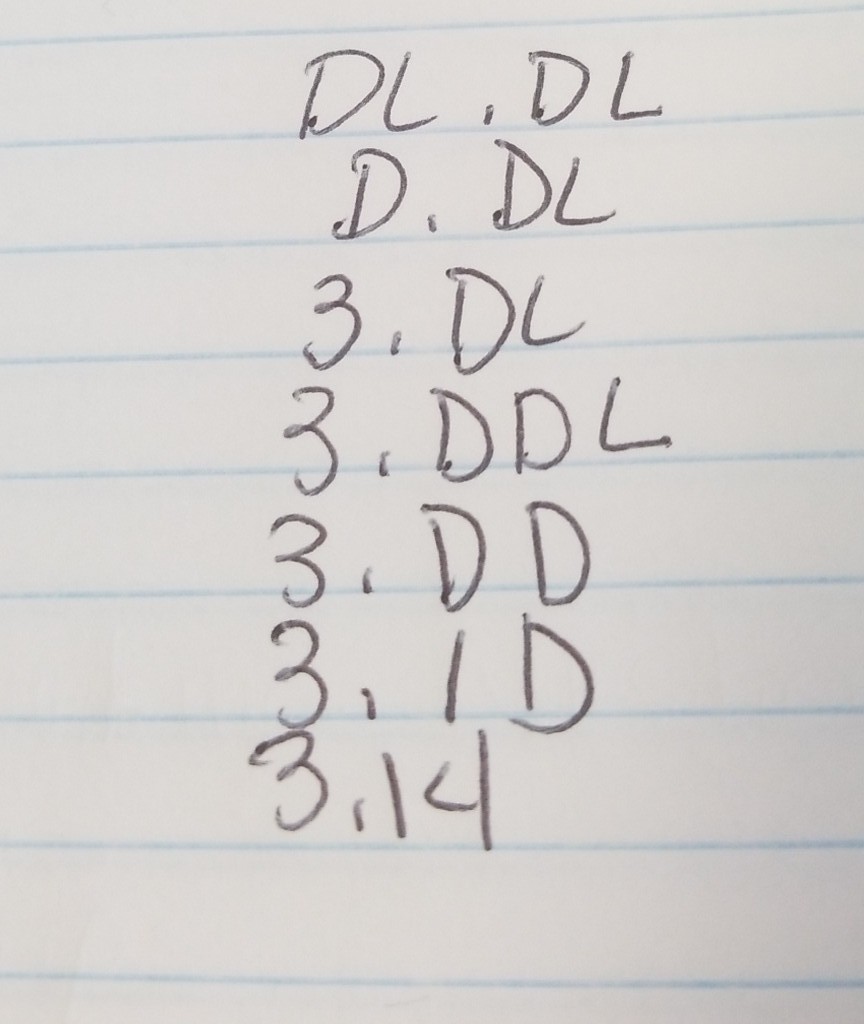 DL.DL
D.DL
3.DL
3.DDL
3.DD
3.1D
3.14